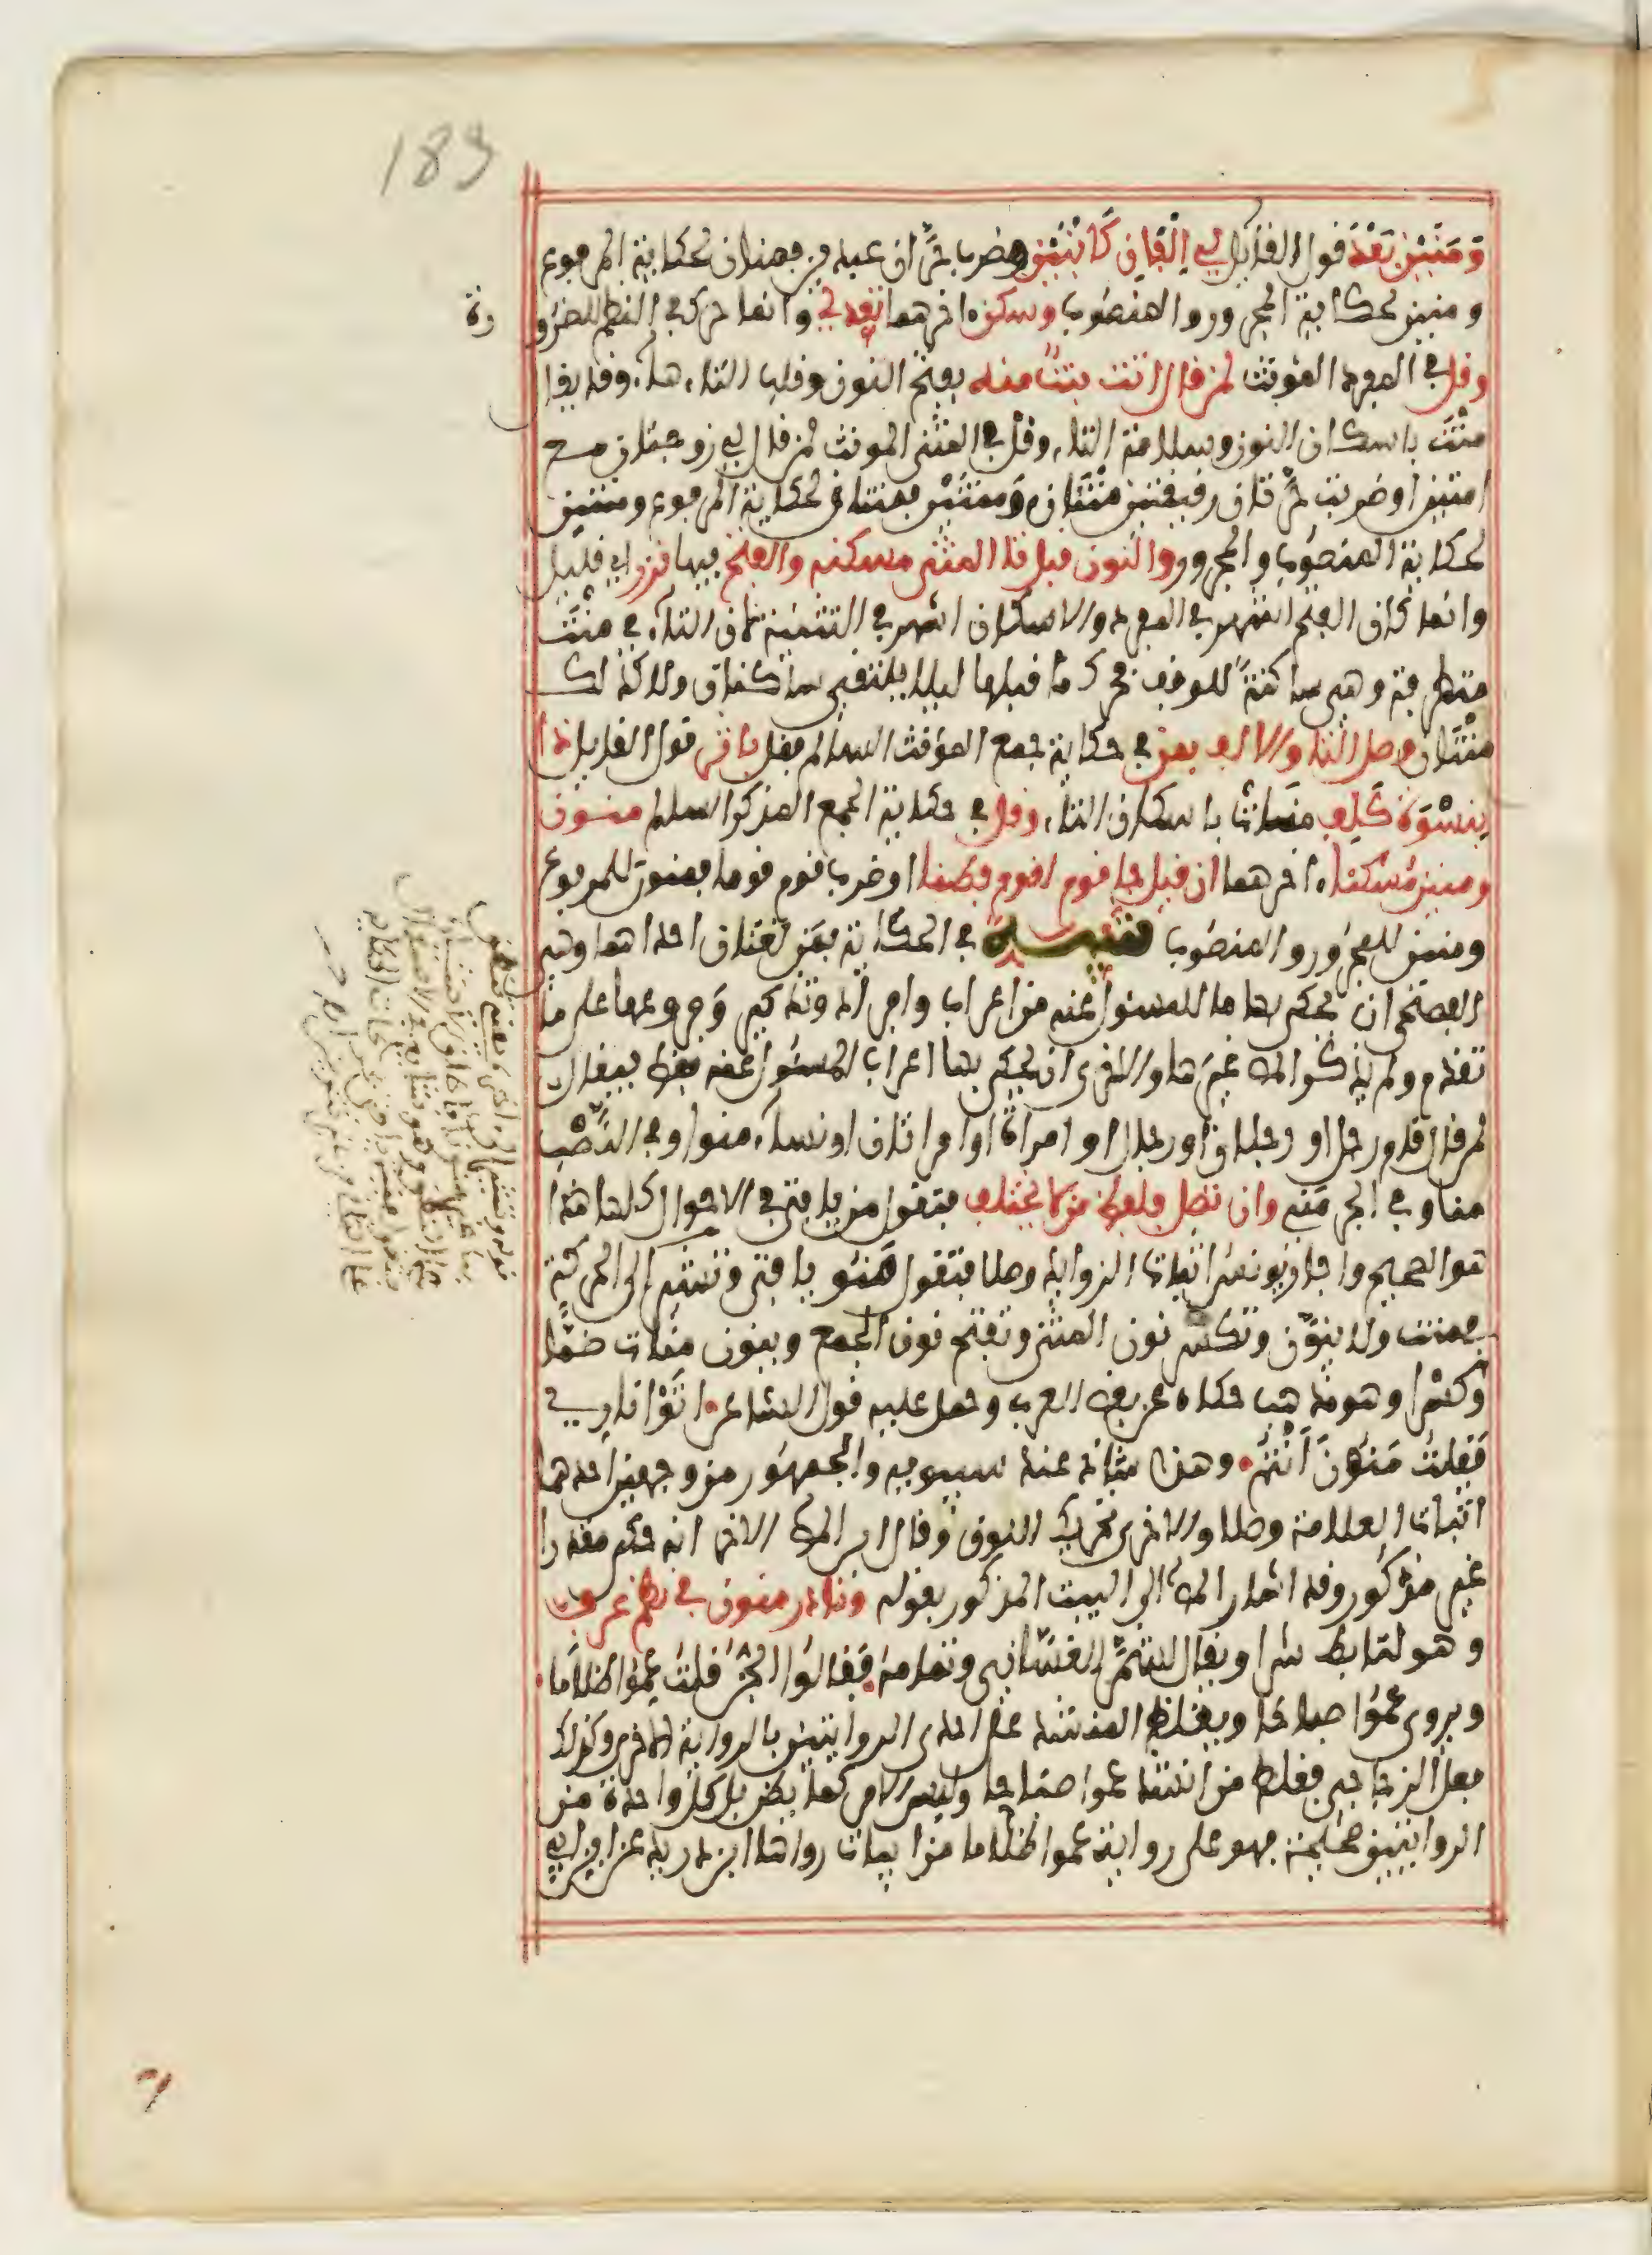 183
وَمَنَيْنِ بَعْدَ قول القائل لي إِلْفَانِ كَابْنَيْنِ وضرب حران عبدين فمنان لحكاية المرفوع
ومنين لحكاية المجرور والمنصوب وسكن اخرهما تعدل وانما حرك في النظم للضرو
رة
وقل في المفرد المؤنث لمن قال اتت بنت منه بفتح النون وقلب التاء هاء وقد يقال
منْت باسكان النون وسلامة التاء وقل في المثنى المونث لمن قال لي زوجتان مع
امتين او ضربت حرتان رقيقتين منْتان ومنتين فمنتان لحكاية المرفوع ومنتين
لحكاية المنصوب والمجرور والنون قبل تا المثنى مسكنه والفتح فيها نزر اي قليل
وانما كان الفتح اشهر في المفرد والاسكان اشهر في التثنية لان التاء في منت
متطرفة وهي ساكنة للوقف فحرك ما قبلها ليلا يلتقي ساكنان ولا كذلك
منتان وصل التا والالف بمن في حكاية جمع المؤنث السالم فقل باثر قول القايل ذا
بنسْوَة كلِف منات باسكان التاء وقل في حكاية الجمع المذكر السالم منون
ومنين مسكنا اخرهما ان قيل جا قوم لقوم فطنا او ضرب قوم قوما فمنون للمرفوع
ومنين للمجرور والمنصوب تنبيه في الحكاية بمن لغتان احداهما وهي
الفصحى ان يحكى بها ما للمسئول عنه من اعراب وافراد وتذكير وفروعها على ما
تقدم ولم يذكر المص غيرها والاخرى ان يحكى بها اعراب المسئول عنه فقط فيقال
لمن قال قام رجل او رجلان او رجال او امراة او امراتان او نساء منو وفي النصب
منا وفي الجر مني وان تصل فلفظ من لا يختلف فتقول من يا فتى في الاحوال كلها هذا
هو الصحيح واجاز يونس اثبات الزوايد وصلا فتقول منو يا فتى وتشير الى الحركة
في منت ولا ينون وتكسر نون المثنى وتفتح نون الجمع وينون منات ضما
وكسرا وهو مذهب حكاه عن بعض العرب وحمل عليه قول الشاعر اتَوْا نارِي
فَقلت مَنُونَ أَنْتُم وهذا شاذ عند سيبويه والجمهور من وجهين احدهما
اثبات العلامة وصلا والاخرى تحريك النون وقال ابن المص الاخر انه حكى مقدرا
غير مذكور وقد اشار المص الى البيت المذكور بقوله ونادر منون في نظم عرف
وهو لتابط شرا ويقال لشمر الغساني وتمامه فَقالوا الجنُّ قلت عموا ظلاما
ويروى عموا صباحا ويغلط المنشد على احدى الروايتين بالرواية الاخرى وكذلك
فعل الزجاجي فغلط من انشد عموا صباحا وليس الامر كما يظن بل كل واحدة من
الروايتين صحيحة فهو على رواية عموا ظلاما من ابيات رواها ابن دريد عن ابي